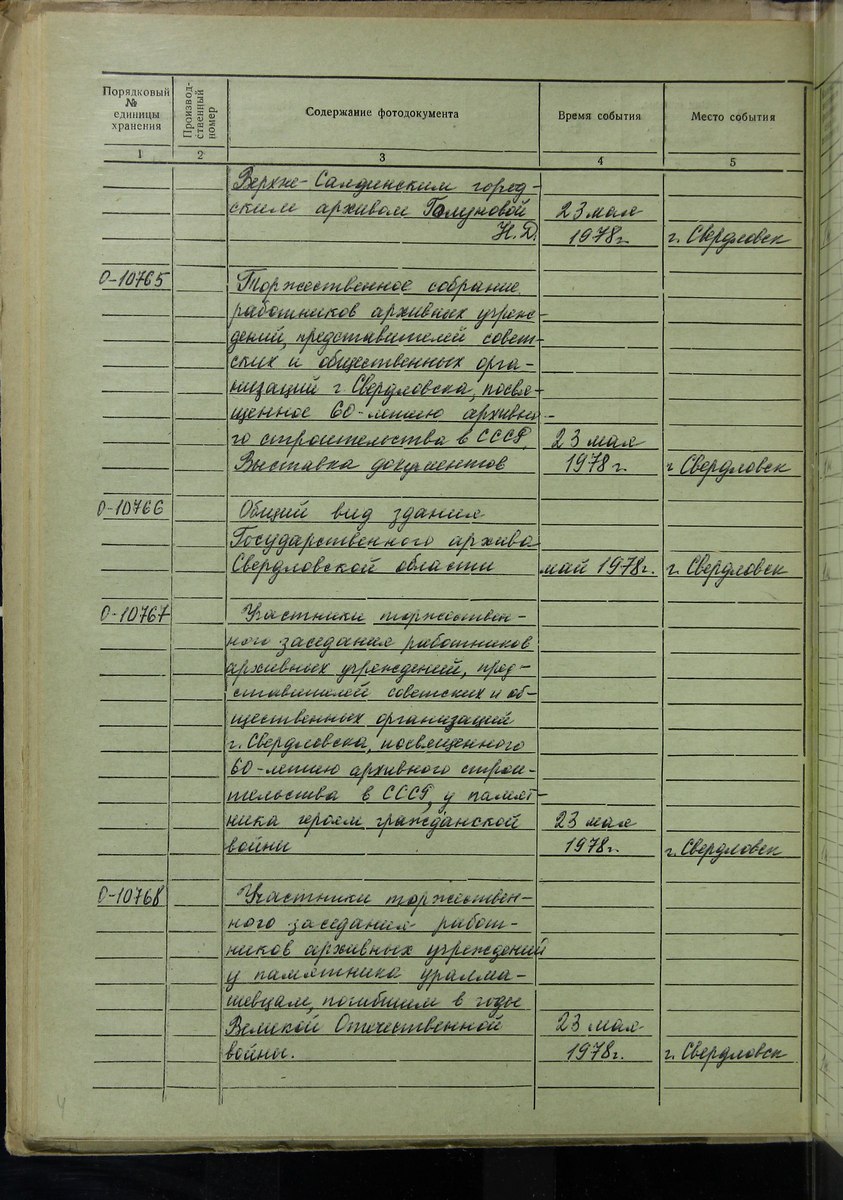 Порядковый № единицы хранения
Производственный номер
Содержание фотодокумента
Время события
Место события
1 2 3 4 5
Верхне-Салдинским город-
ским архивом 23 мая
Н.Д. 1978г. г. Свердловск
О-10765 Торжественное собрание
работников архивных учреж-
дений, представителей совет-
ских и общественных орга-
низаций г. Свердловска, посвя-
щенное 60-летию архивно-
го строительства в СССР. 23 мая
Выставка документов 1978г. г Свердловск
О-10766 Общий вид здания
Государственного архива
Свердловской области май 1978г. г. Свердловск
О-10767 Участники торжествен-
ного заседания работников
архивных учреждений, пред-
ставителей советских и об-
щественных организаций
г. Свердловска, посвященного
60-летию архивного строи-
тельства в СССР, у памят-
ника героям гражданской 23 мая
войны 1978г. г. Свердловск
О-10768 Участники торжествен-
ного заседания работ-
ников архивных учреждений
у памятника уралма-
шевцам, погибшим в годы
Великой Отечественной 23 мая
войны. 1978г. г. Свердловск